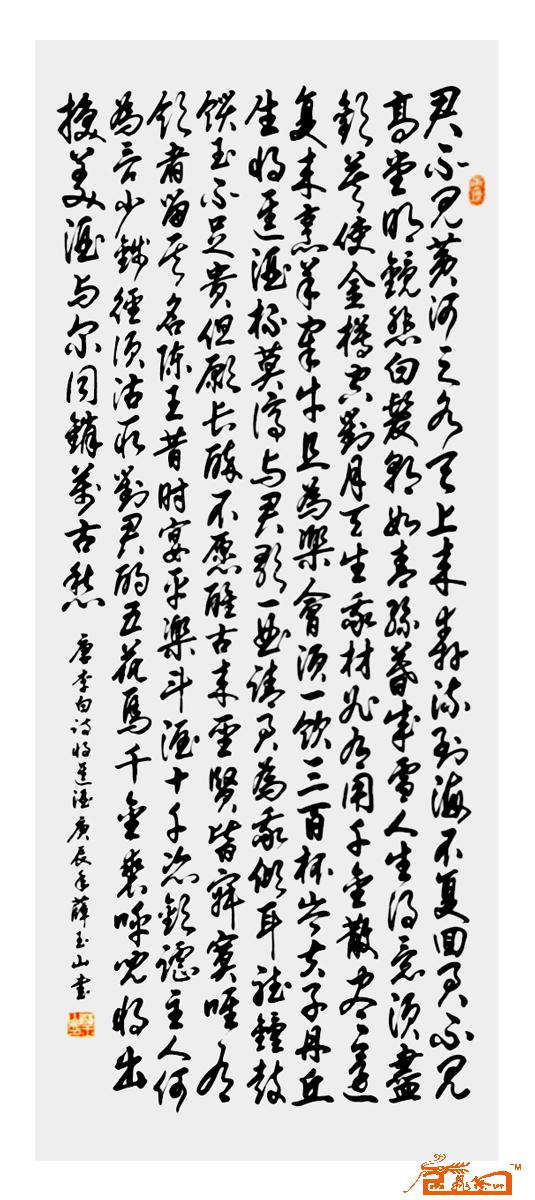 君不见黄河之水天上来奔流到海不复回君不见
高堂明镜悲白发朝如青丝暮成雪人生得意须尽
欢莫使金樽空对月天生我材必有用千金散尽还
复来烹羊宰牛且为乐会须一饮三百杯岑夫子丹丘
生将进酒杯莫停与君歌一曲请君为我倾耳听钟鼓
馔玉不足贵但愿长醉不愿醒古来圣贤皆寂寞唯有
饮者留其名陈王昔时宴平乐斗酒十千恣欢谑主人何
为言少钱径须沽取对君酌五花马千金裘呼儿将出
换美酒与尔同销万古愁
唐李白诗将进酒庚辰年薛玉山书